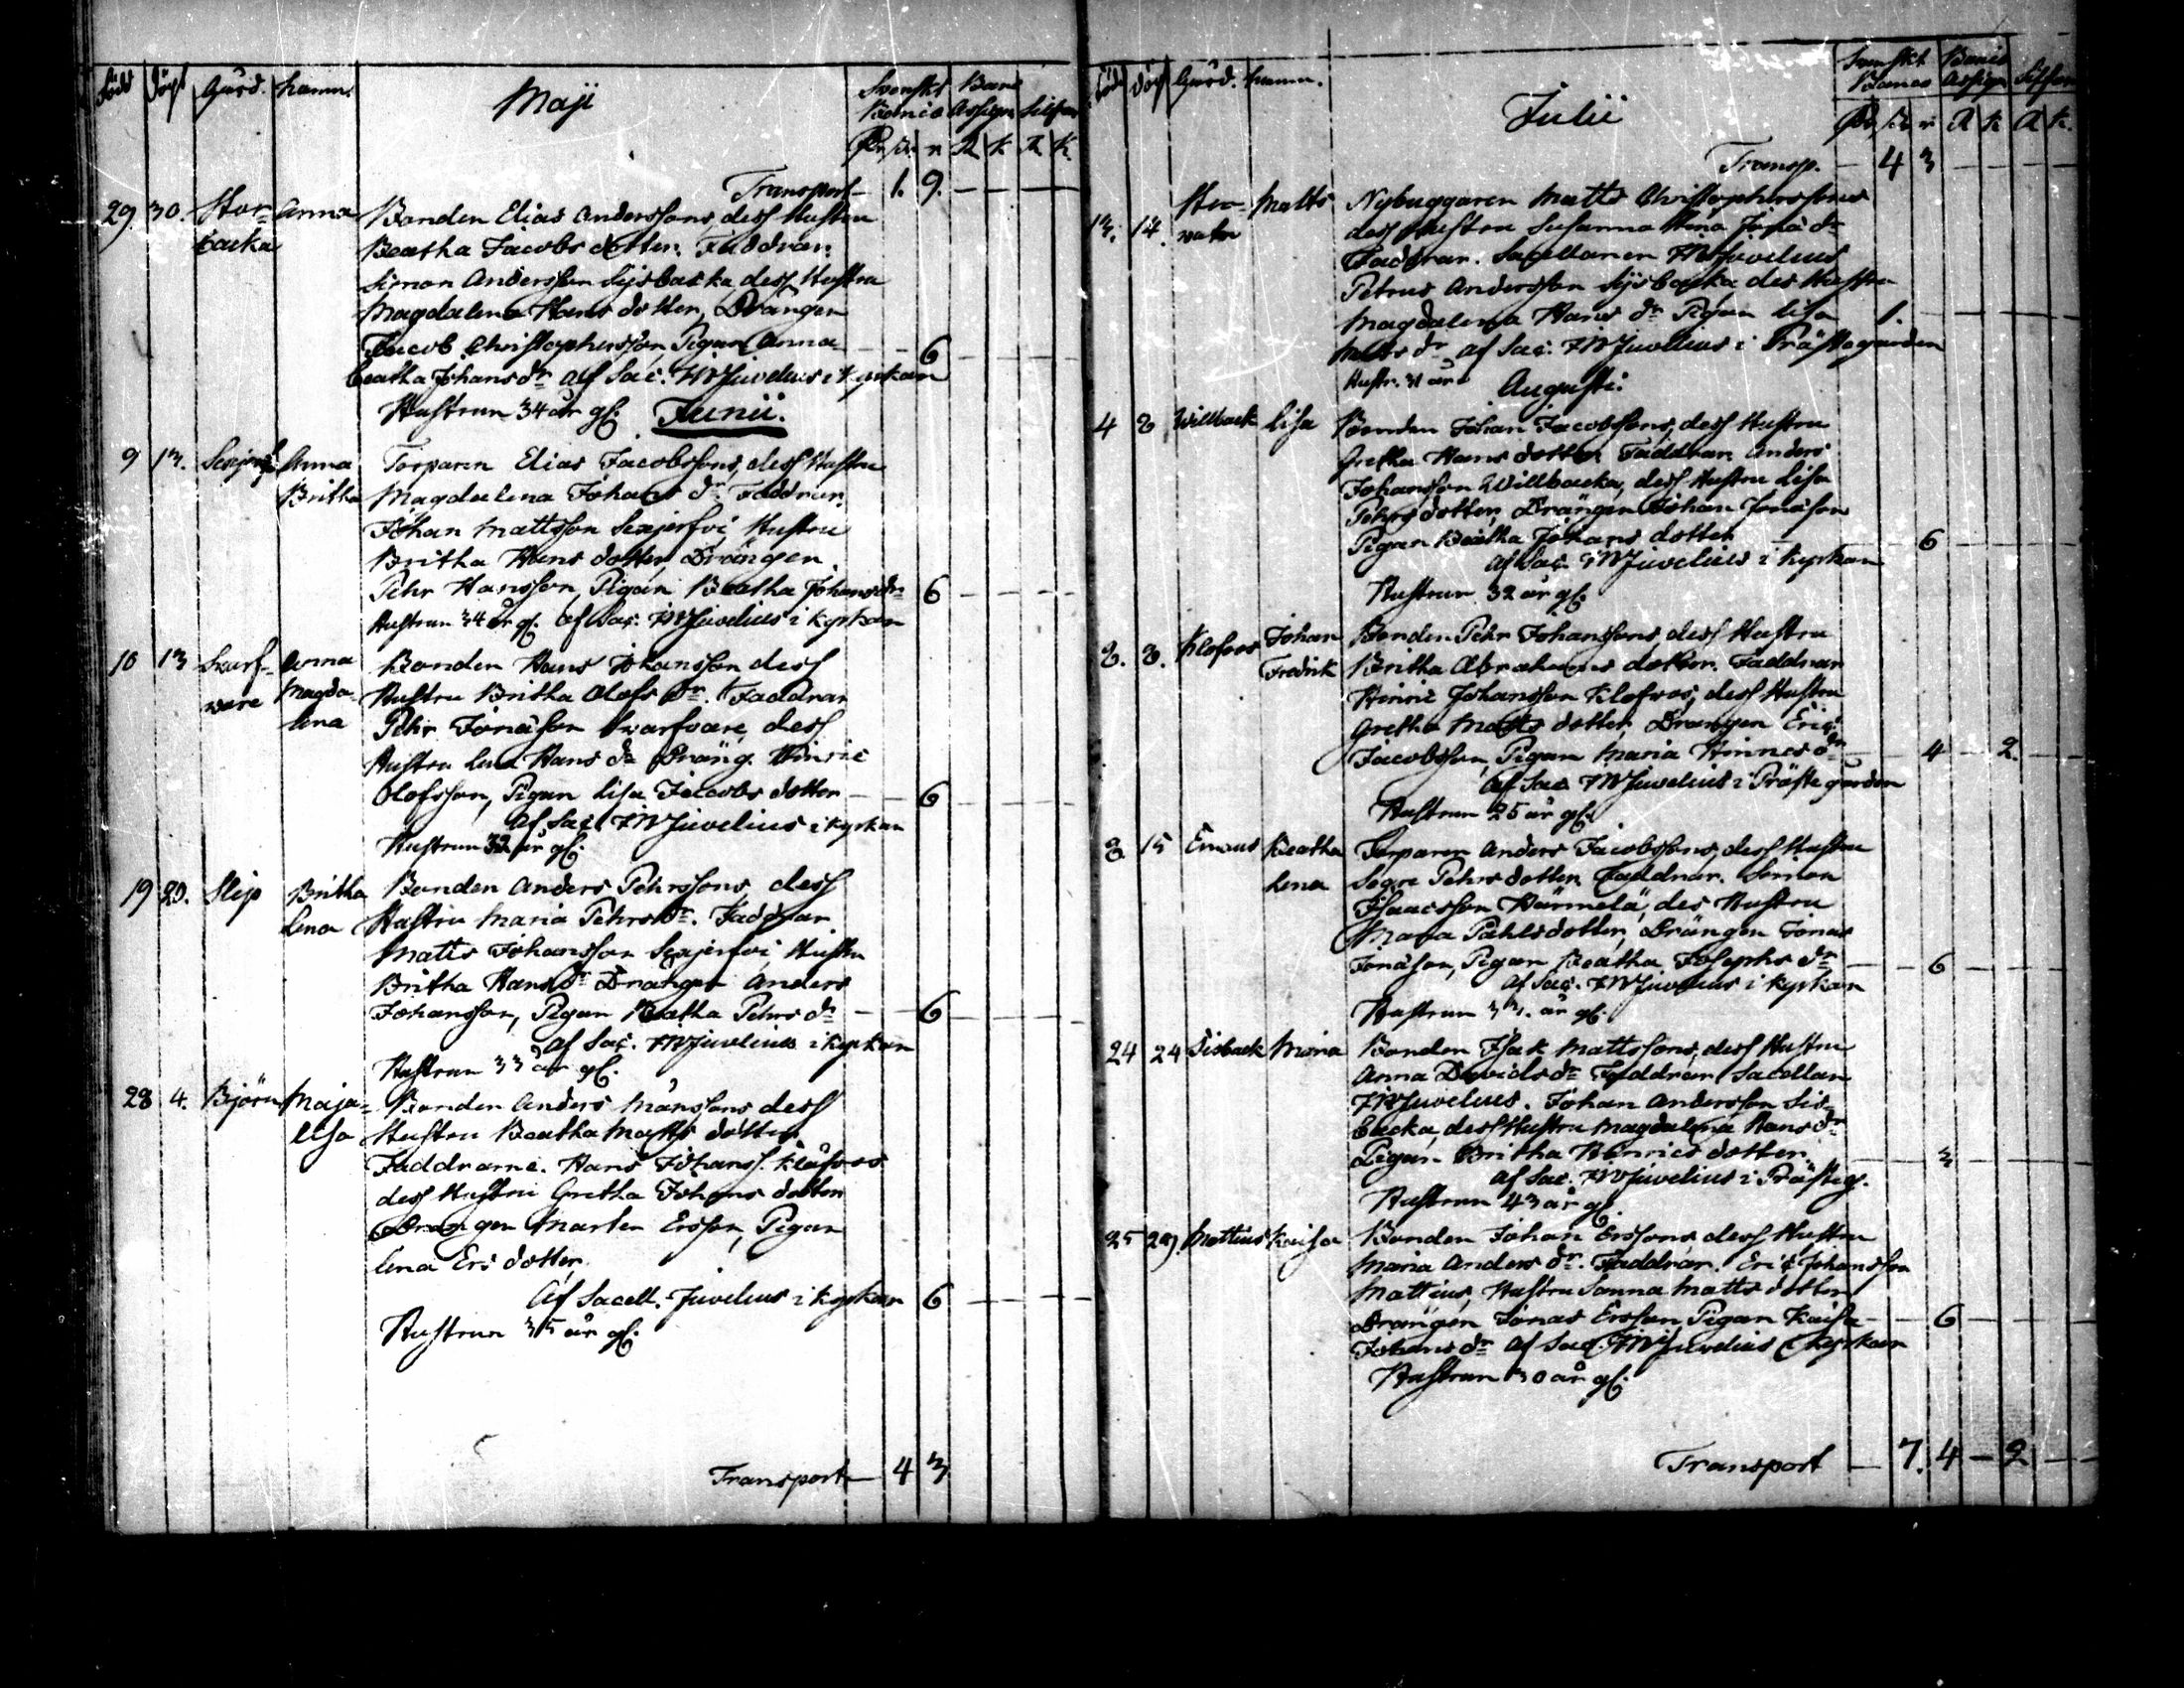 Född Döpt Gård. Namn. Maji Svenskt Banco Banc Assign Silfver
Rr sk r R K R K
Transport 1. 9.
29. 30. Stor= Anna Bonden Elias Anderssons, dess Hustru
backa Beatha Jacobs dotter. Faddrar.
Simon Andersson Sijsbacka dess Hustru
Magdalena Hans dotter, Drängen
Jacob Christophersson, Pigan Anna 6
Beatha Johans dr af Sac. Juvelius i Kyrkan
Hustrun 34 år gl. Junii.
9 13. Anna Torparen Elias Jacobssons, dess Hustru
Britha Magdalena Johans dr Faddrar.
Johan Mattsson Sexjerfvi, Hustru
Britha Hans dotter, Drängen
Pehr Hansson, Pigan Beatha Johans dr 6
Hustrun 34 år gl. af Sac. Juvelius i Kyrkan
10 13 Svarf= Anna Bonden Hans Johansson dess
vare Magda= Hustru Britha Olofs dr. Faddrar
lena Pehr Jonasson Svarfvare, dess
Hustru Lena Hans dr Dräng. Hinric
Olofsson, Pigan Lisa Jacobs dotter 6
af Sac. Juvelius i Kyrkan
Hustrun 32 år gl.
19 20. Slip Britha Bonden Anders Pehrssons, dess
Lena Hustru Maria Pehrs dr. Faddrar.
Matts Johansson Sexjerfvi, Hustru
Britha Hans dr Drängen Anders
Johansson, Pigan Beatha Pehrs dr 6
af Sac. Juvelius i Kyrkan
Hustrun 33 år gl.
28 4. Björn Maja= Bonden Anders Månssons dess
Lisa Hustru Beatha Matts dotter
Faddrarne. Hans Johanss. Klåfvos
dess Hustru Gretha Johans dotter
Drängen Marten Ersson, Pigan
Lena Ers dotter,
Af Sacell. Juvelius i Kyrkan 6
Hustrun 35 år gl.
Transport 4 3
Född Döpt Gård. Namn. Julii Svenskt Banco Banco Assign Silfver
Rr sk r R K R K.
Transp. 4 3
Matts Nybyggaren Matts Christophersons
13. 14. dess Hustru Susanna Stina Jona dr
Faddrar. Sacellanen Juvelius
Petrus Andersson Sijsbacka, des Hustru
Magdalena Hans dr Pigan Lisa 1.
Matts dr af Sac. Juvelius i Prästegården
Hustr. 31 år Augusti.
4 8 Willback Lisa Bonden Johan Jacobssons, dess Hustru
Gretha Hans dotter Faddrar Anders
Johansson Willbacka, dess Hustru Lisa
Pehrs dotter, Drängen Johan Jonason
Pigan Beatha Johans dotter 6
af Sac. Juvelius i Kyrkan
Hustrun 32 år gl.
8. 8. Klofvos Johan Bonden Pehr Johanssons, dess Hustru
Fredrik Britha Abrahams dotter. Faddrar
Hinric Johansson Klofvos, dess Hustru
Gretha Matts dotter, Drängen Eric
Jacobsson, Pigan Maria Hinrics dr 4 2.
af Sac Juvelius i Prästegården
Hustrun 25 år gl.
8 15 Emaus Beatha Torparen Anders Jacobssons, dess Hustru
Lena Segre Pehrs dotter. Faddrar. Simon
Isaacsson Härmelä, des Hustru
Maria Pahlsdotter, Drängen Jonas
Jonason, Pigan Beatha Josephs dr 6
af Sac. Juvelius i Kyrkan
Hustrun 33. år gl.
24 24 Sisback Maria Bonden Isak Mattssons, dess Hustru
Anna Davids dr Faddrar Sacellan
Juvelius. Johan Andersson Sis=
backa, dess Hustru Magdalena Hans dr
Pigan Britha Henrics dotter. 3
af Sac. Juvelius i Prästeg.
Hustrun 43 år gl.
25 29 Mattius Kaisa Bonden Johan Erssons dess Hustru
Maria Anders dr. Faddrar. Eric Johansson
Mattius, Hustru Sanna Matts dotter
Drängen Jonas Ersson, Pigan Kaisa 6
Johans dr af Sac. Juvelius i Kyrkan
Hustrun 30 år gl.
Transport 7. 4 2